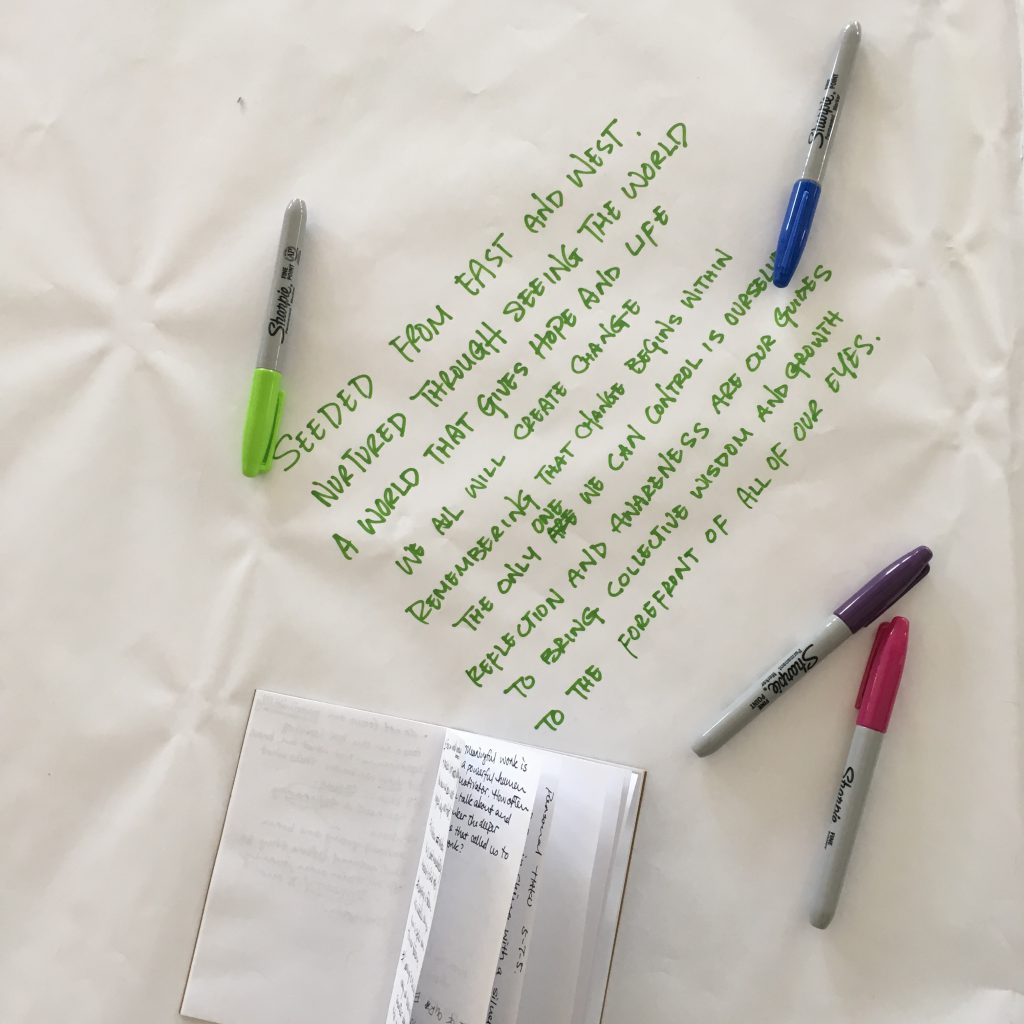 SEEDED FROM EAST AND WEST.
NURTURED THROUGH SEEING THE WORLD
A WORLD THAT GIVES HOPE AND LIFE
WE ALL WILL CREATE CHANGE
REMEMBERING THAT CHANGE BEGINS WITHIN
THE ONLY ONE WE CAN CONTROL IS OURSELVE
REFLECTION AND AWARENESS ARE OUR GUIDES
TO BRING COLLECTIVE WISDOM AND GROWTH
TO THE FOREFRONT OF ALL OF OUR EYES.
Sharpie
FINE POINT
AP
Sharpie
FINE POINT
Sharpie
Permanent Marker
FINE POINT
Sharpie
FINE
Meaningful work is
a powerful human
motivator. How often
talk about and
the deeper
that called us to
5-7-5.
with a